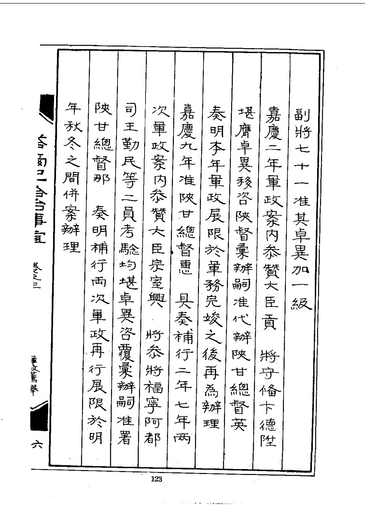 副將七十一准其卓異加一級
嘉慶二年軍政案內叅贊大臣貢 將守備卞德陞
堪膺卓異移咨陝督彙辦嗣准代辦陝甘總督英
奏明本年軍政展限於軍務完竣之後再為辦理
嘉慶九年准陝甘總督惠 具奏補行二年七年兩
次軍政案內叅贊大臣宗室興 將叅將福寧阿都
司王勤民等二員考驗均堪卓異咨覆彙辦嗣准署
陝甘總督那 奏明補行兩次軍政再行展限於明
年秋冬之間併案辦理
塔爾巴哈台事宜 卷之三 六
123